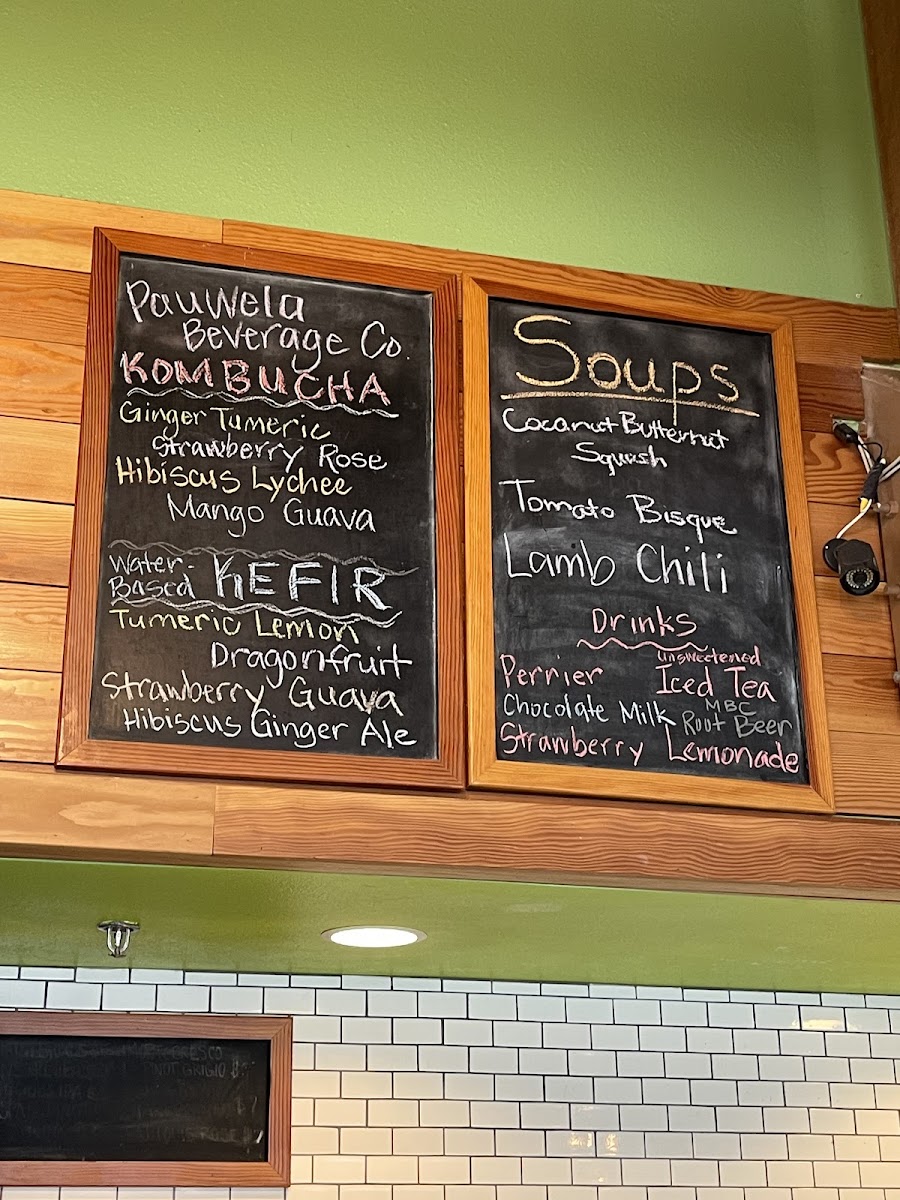 Pauwela
Beverage Co.
KOMBUCHA
Ginger Tumeric
Strawberry Rose
Hibiscus Lychee
Mango Guava
Water-
Based KEFIR
Tumeric Lemon
Dragonfruit
Strawberry Guava
Hibiscus Ginger Ale
Soups
Coconut Butternut
Squash
Tomato Bisque
Lamb Chili
Drinks
Perrier
Unsweetened
Iced Tea
Chocolate Milk
MBC
Root Beer
Strawberry Lemonade